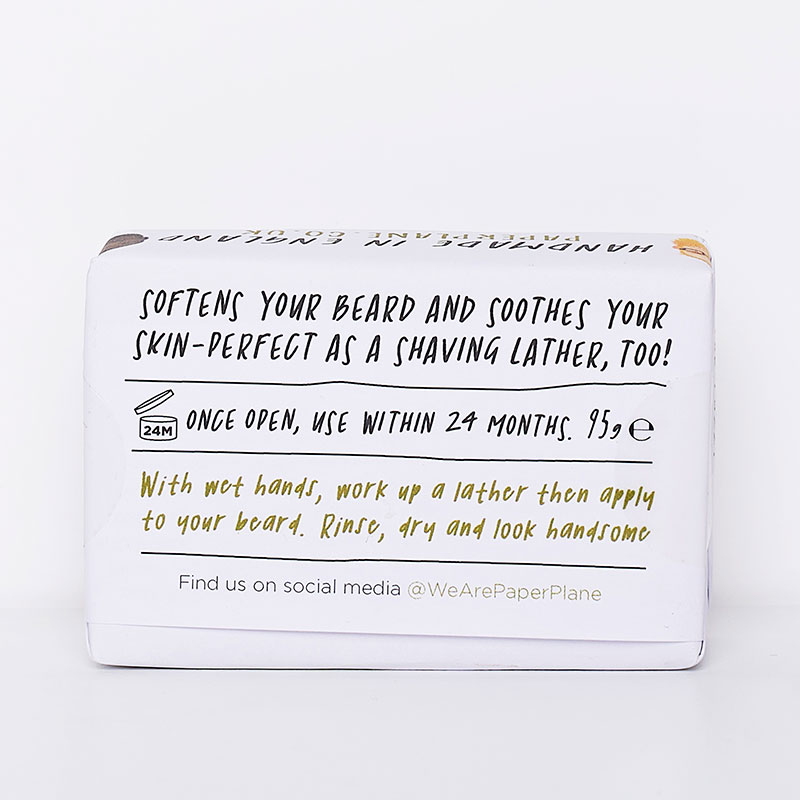 HANDMADE IN ENGLAND
PAPERPLANE.CO.UK
SOFTENS YOUR BEARD AND SOOTHES YOUR
SKIN-PERFECT AS A SHAVING LATHER, TOO!
24M ONCE OPEN, USE WITHIN 24 MONTHS. 95g ℮
With wet hands, work up a lather then apply
to your beard. Rinse, dry and look handsome
Find us on social media @WeArePaperPlane